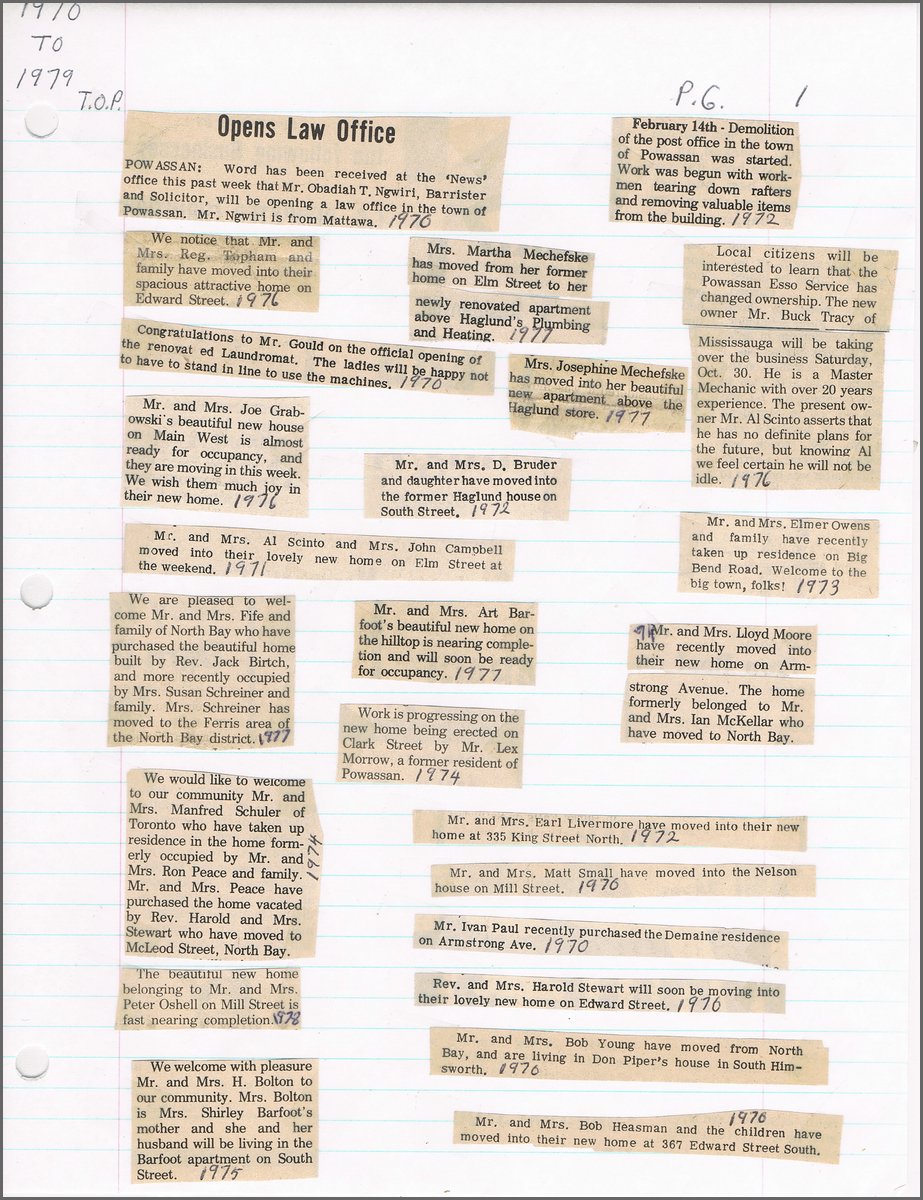 1970
TO
1979
T.O.P.
P.G. 1
Opens Law Office
POWASSAN: Word has been received at the 'News'
office this past week that Mr. Obadiah T. Ngwiri, Barrister
and Solicitor, will be opening a law office in the town of
Powassan. Mr. Ngwiri is from Mattawa. 1970
February 14th - Demolition
of the post office in the town
of Powassan was started.
Work was begun with work-
men tearing down rafters
and removing valuable items
from the building. 1972
We notice that Mr. and
Mrs. Reg. Topham and
family have moved into their
spacious attractive home on
Edward Street. 1976
Mrs. Martha Mechefske
has moved from her former
home on Elm Street to her
newly renovated apartment
above Haglund's Plumbing
and Heating. 1977
Local citizens will be
interested to learn that the
Powassan Esso Service has
changed ownership. The new
owner Mr. Buck Tracy of
Mississauga will be taking
over the business Saturday,
Oct. 30. He is a Master
Mechanic with over 20 years
experience. The present ow-
ner Mr. Al Scinto asserts that
he has no definite plans for
the future, but knowing Al
we feel certain he will not be
idle. 1976
Congratulations to Mr. Gould on the official opening of
the renovat ed Laundromat. The ladies will be happy not
to have to stand in line to use the machines. 1970
Mrs. Josephine Mechefske
has moved into her beautiful
new apartment above the
Haglund store. 1977
Mr. and Mrs. Joe Grab-
owski's beautiful new house
on Main West is almost
ready for occupancy, and
they are moving in this week.
We wish them much joy in
their new home. 1976
Mr. and Mrs. D. Bruder
and daughter have moved into
the former Haglund house on
South Street. 1972
Mr. and Mrs. Al Scinto and Mrs. John Campbell
moved into their lovely new home on Elm Street at
the weekend. 1971
Mr. and Mrs. Elmer Owens
and family have recently
taken up residence on Big
Bend Road. Welcome to the
big town, folks! 1973
We are pleased to wel-
come Mr. and Mrs. Fife and
family of North Bay who have
purchased the beautiful home
built by Rev. Jack Birtch,
and more recently occupied
by Mrs. Susan Schreiner and
family. Mrs. Schreiner has
moved to the Ferris area of
the North Bay district. 1977
Mr. and Mrs. Art Bar-
foot's beautiful new home on
the hilltop is nearing comple-
tion and will soon be ready
for occupancy. 1977
Mr. and Mrs. Lloyd Moore
have recently moved into
their new home on Arm-
strong Avenue. The home
formerly belonged to Mr.
and Mrs. Ian McKellar who
have moved to North Bay.
Work is progressing on the
new home being erected on
Clark Street by Mr. Lex
Morrow, a former resident of
Powassan. 1974
We would like to welcome
to our community Mr. and
Mrs. Manfred Schuler of
Toronto who have taken up
residence in the home form-
erly occupied by Mr. and
Mrs. Ron Peace and family.
Mr. and Mrs. Peace have
purchased the home vacated
by Rev. Harold and Mrs.
Stewart who have moved to
McLeod Street, North Bay.
1974
Mr. and Mrs. Earl Livermore have moved into their new
home at 335 King Street North. 1972
Mr. and Mrs. Matt Small have moved into the Nelson
house on Mill Street. 1970
Mr. Ivan Paul recently purchased the Demaine residence
on Armstrong Ave. 1970
The beautiful new home
belonging to Mr. and Mrs.
Peter Oshell on Mill Street is
fast nearing completion. 1978
Rev. and Mrs. Harold Stewart will soon be moving into
their lovely new home on Edward Street. 1970
Mr. and Mrs. Bob Young have moved from North
Bay, and are living in Don Piper's house in South Him-
sworth. 1970
We welcome with pleasure
Mr. and Mrs. H. Bolton to
our community. Mrs. Bolton
is Mrs. Shirley Barfoot's
mother and she and her
husband will be living in the
Barfoot apartment on South
Street. 1975
1970
Mr. and Mrs. Bob Heasman and the children have
moved into their new home at 367 Edward Street South.